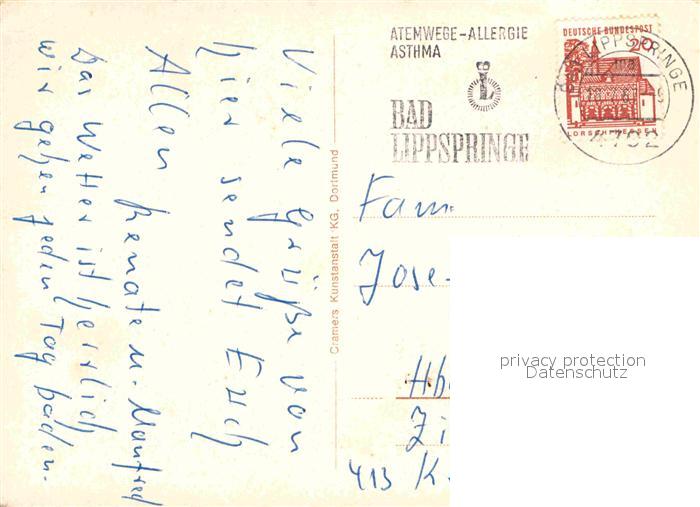 Viele Grüße von
hier sendet Euch
Allen
Renate u. Manfred
Das Wetter ist herrlich
wir gehen jeden Tag baden.
Cramers Kunstanstalt KG, Dortmund
ATEMWEGE-ALLERGIE
ASTHMA
BAD
LIPPSPRINGE
DEUTSCHE BUNDESPOST
20
LORSCH/HESSEN
BAD LIPPSPRINGE
4792
Fam.
Jose
413 K
privacy protection
Datenschutz